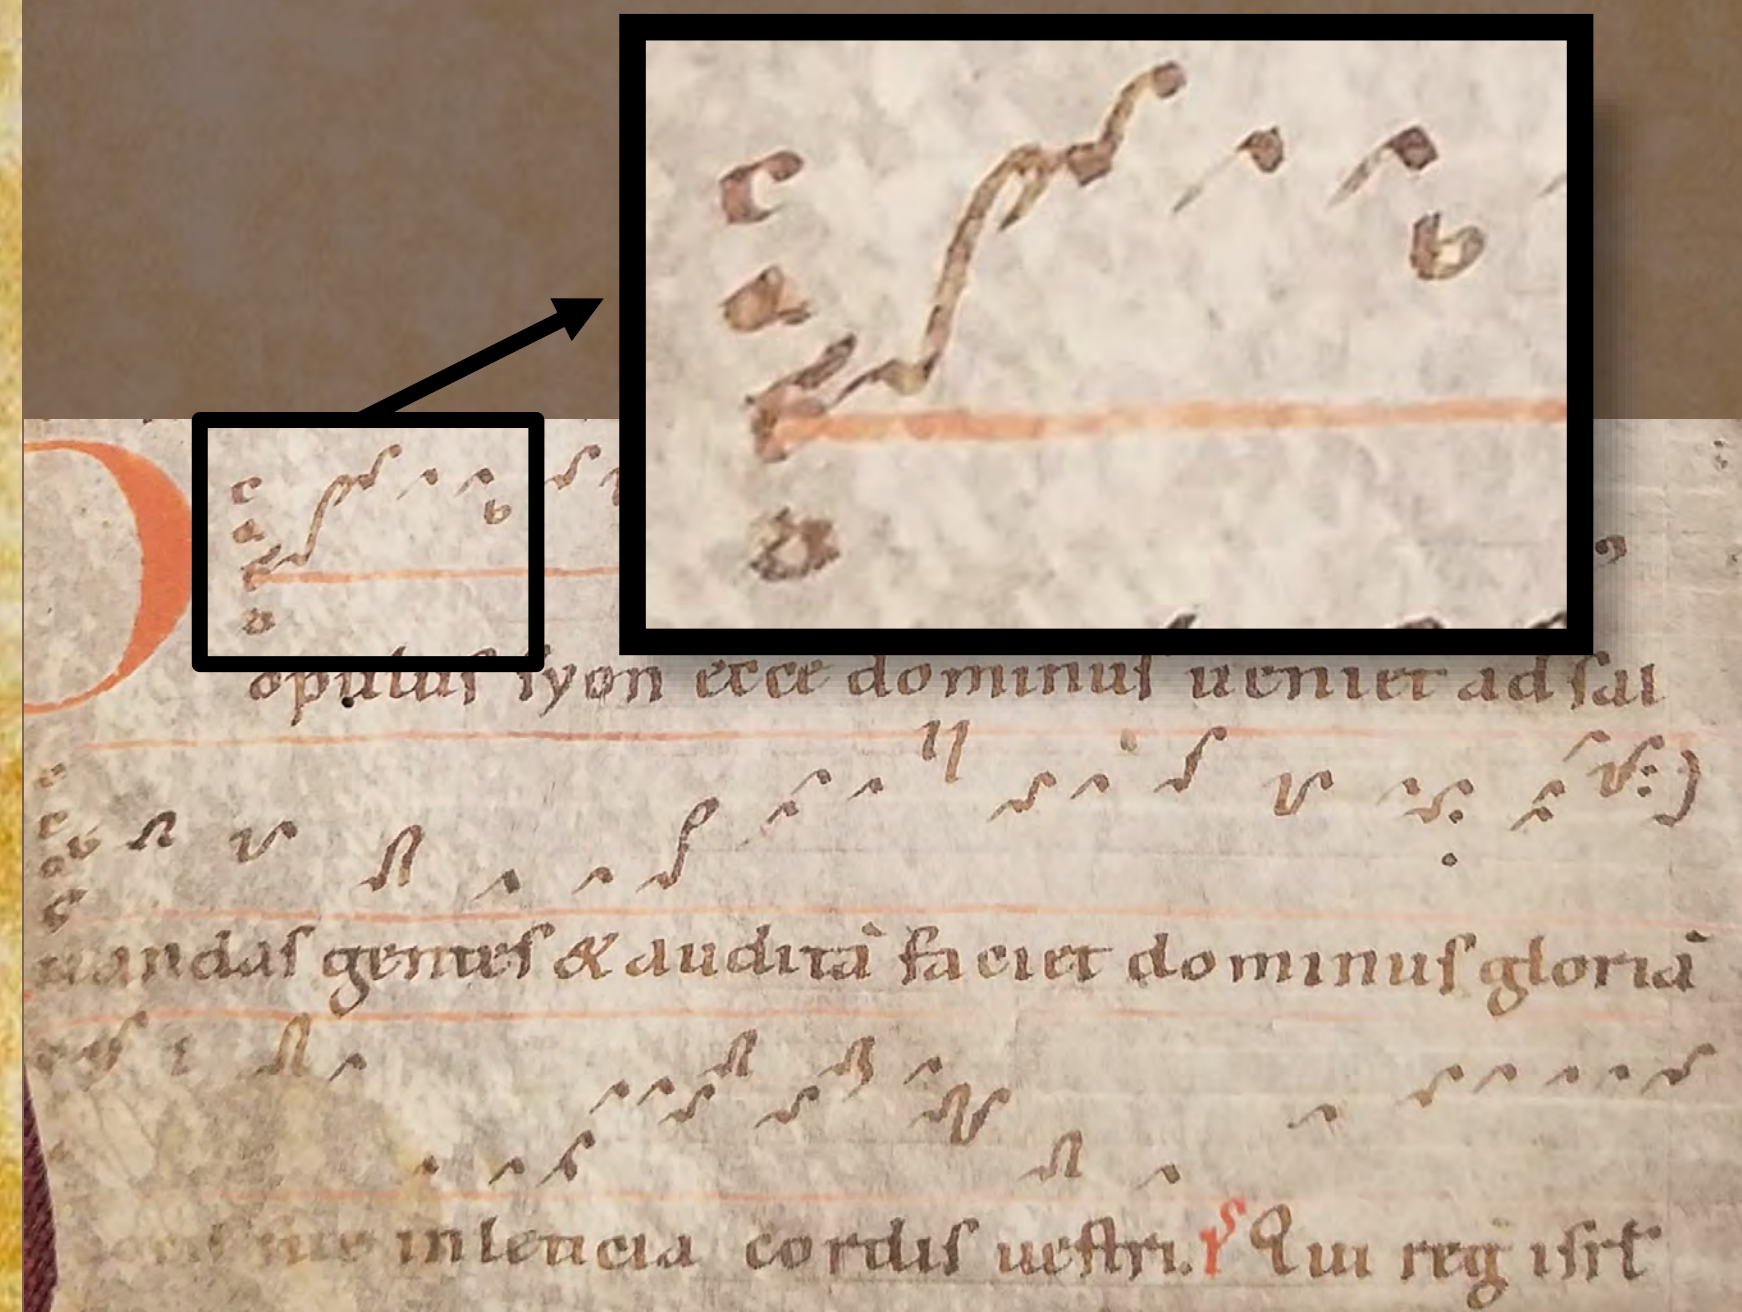 c
a
b
F
D
opuluſ ſyon ecce dominuſ ueniet ad ſal
uandaſ genteſ & auditā faciet dominuſ gloriā
ſue inleticia cordiſ ueſtri. Qui reg iſrł